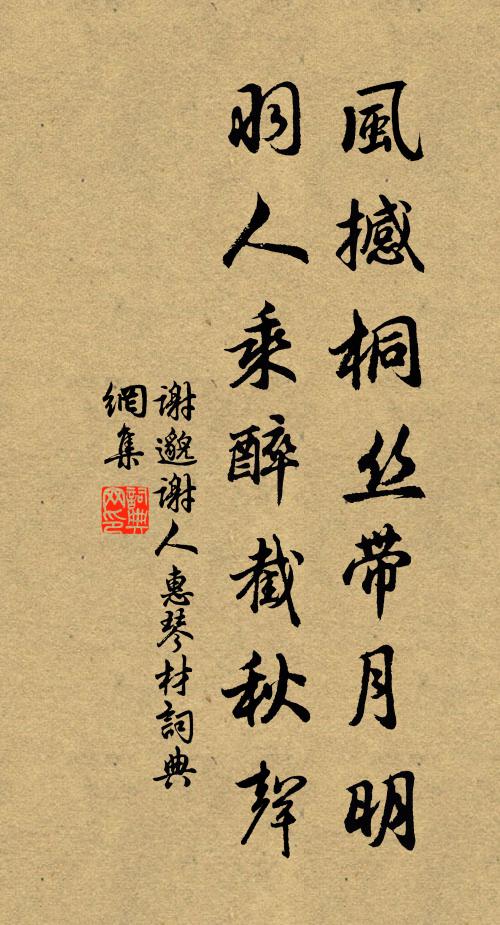 風撼桐丝带月明
羽人乘醉截秋聲
谢邈谢人惠琴材詞典
網集
詞典网印